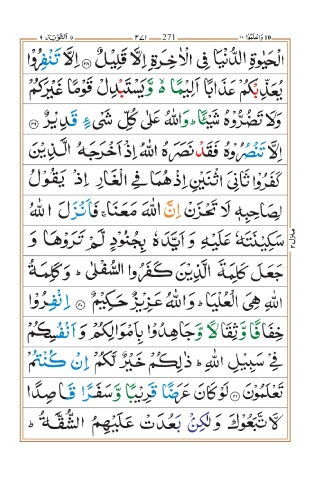 التوبة ٩ ٢٧١ 271 واعلموا ١٠
الْحَيٰوةِ الدُّنْيَا فِي الْاٰخِرَةِ اِلَّا قَلِيْلٌ ﴿٣٨﴾ اِلَّا تَنْفِرُوْا
يُعَذِّبْكُمْ عَذَابًا اَلِيْمًا ۙ۬ وَّيَسْتَبْدِلْ قَوْمًا غَيْرَكُمْ
وَلَا تَضُرُّوْهُ شَيْئًا ؕ وَاللّٰهُ عَلٰى كُلِّ شَىْءٍ قَدِيْرٌ ﴿٣٩﴾
اِلَّا تَنْصُرُوْهُ فَقَدْ نَصَرَهُ اللّٰهُ اِذْ اَخْرَجَهُ الَّذِيْنَ
كَفَرُوْا ثَانِىَ اثْنَيْنِ اِذْ هُمَا فِى الْغَارِ اِذْ يَقُوْلُ
لِصَاحِبِهٖ لَا تَحْزَنْ اِنَّ اللّٰهَ مَعَنَا ۚ فَاَنْزَلَ اللّٰهُ
سَكِيْنَتَهٗ عَلَيْهِ وَ اَيَّدَهٗ بِجُنُوْدٍ لَّمْ تَرَوْهَا وَ
جَعَلَ كَلِمَةَ الَّذِيْنَ كَفَرُوا السُّفْلٰى ؕ وَكَلِمَةُ
اللّٰهِ هِىَ الْعُلْيَا ؕ وَاللّٰهُ عَزِيْزٌ حَكِيْمٌ ﴿٤٠﴾ اِنْفِرُوْا
خِفَافًا وَّثِقَالًا وَّ جَاهِدُوْا بِاَمْوَالِكُمْ وَ اَنْفُسِكُمْ
فِىْ سَبِيْلِ اللّٰهِ ؕ ذٰلِكُمْ خَيْرٌ لَّكُمْ اِنْ كُنْتُمْ
تَعْلَمُوْنَ ﴿٤١﴾ لَوْ كَانَ عَرَضًا قَرِيْبًا وَّ سَفَرًا قَاصِدًا
لَّاتَّبَعُوْكَ وَلٰكِنْۢ بَعُدَتْ عَلَيْهِمُ الشُّقَّةُ ؕ
منزل ٢